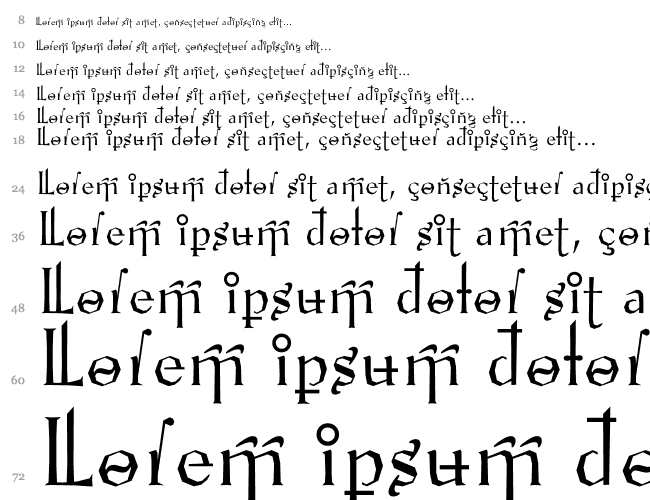 8 Lorem ipsum dolor sit amet, consectetuer adipiscing elit...
10 Lorem ipsum dolor sit amet, consectetuer adipiscing elit...
12 Lorem ipsum dolor sit amet, consectetuer adipiscing elit...
14 Lorem ipsum dolor sit amet, consectetuer adipiscing elit...
16 Lorem ipsum dolor sit amet, consectetuer adipiscing elit...
18 Lorem ipsum dolor sit amet, consectetuer adipiscing elit...
24 Lorem ipsum dolor sit amet, consectetuer adipisc
36 Lorem ipsum dolor sit amet, con
48 Lorem ipsum dolor sit a
60 Lorem ipsum dolor
72 Lorem ipsum do